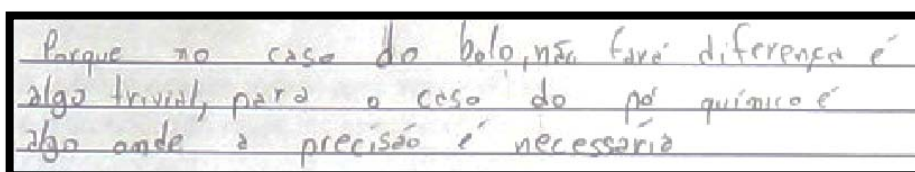 Porque no caso do bolo, não fará diferença é
algo trivial, para o caso do pó químico é
algo onde a precisão é necessária